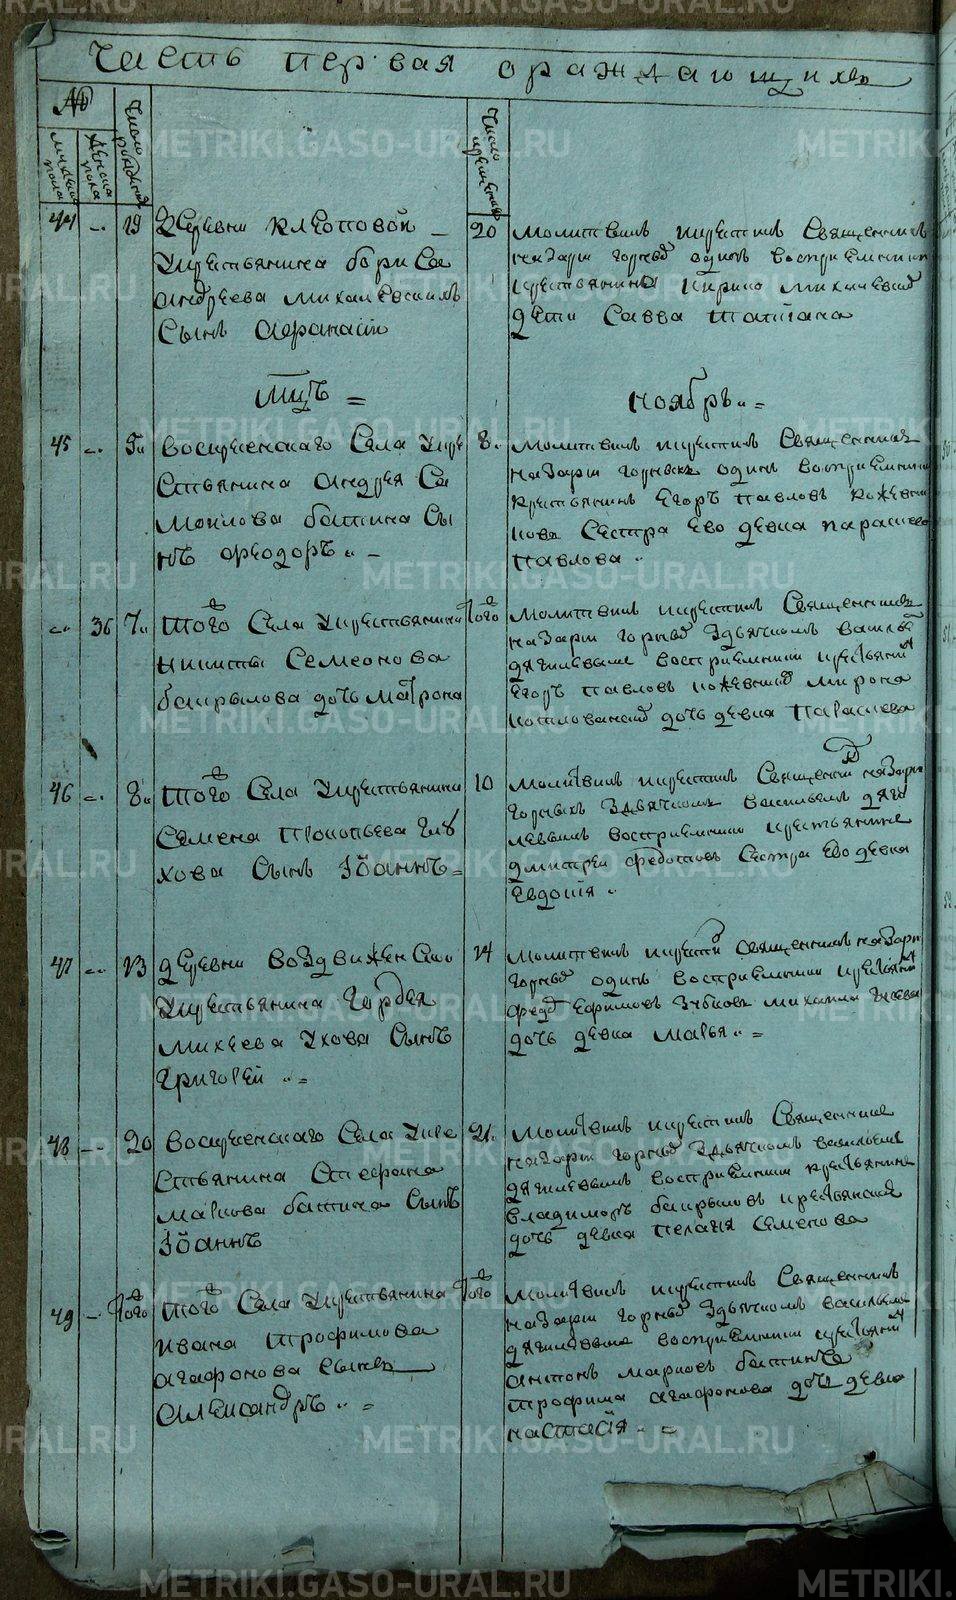 Часть первая ораждающихъ
№
Число рожденія
Число крещенія
мужеска пола
женска пола
44 19 Деревни Клеповой
крестьянина бориса
андреева михалевскихъ
Сынъ афранасій
20 молитвилъ крестилъ Священникъ
назари горныхъ одинъ восприемники
крестьянинъ кирило михалевъ
дети Савва татіана
мцъ
ноябрь
45 5 воскресенскаго Села кре
стьянина андрея Са
моилова батина Сы
нъ феодоръ
8 молитвилъ крестилъ Священникъ
назари горныхъ одинъ восприемники
крестьянинъ егоръ павловъ кожевни
ковъ Сестра ево девка параскева
павлова
36 7 того Села крестьянина
никиты Семеонова
бакрылова дочь матрона
того молитвилъ крестилъ Священникъ
назари горныхъ здьячкомъ васильемъ
дягилевымъ восприемники крестьянинъ
егоръ павловъ кожевниковъ мирона
дочь девка параскева
46 8 того Села крестьянина
Семена прокопьева глу
хова Сынъ Іоаннъ
10 молитвилъ крестилъ Священникъ назари
горныхъ здьячкомъ васильемъ дяги
левымъ восприемники крестьянинъ
дмитрей федотовъ Сестра ево девка
евдокія
47 13 деревни воздвиженской
крестьянина гордея
михеева ухова Сынъ
григорей
14 молитвилъ крестилъ священникъ назари
горныхъ одинъ восприемники крестьянинъ
федоръ ефимовъ зубковъ михаила гусева
дочь девка марья
48 20 воскресенскаго Села кре
стьянина Стефана
маркова батина Сынъ
Іоаннъ
21 молитвилъ крестилъ Священникъ
назари горныхъ здьячкомъ васильемъ
дягилевымъ восприемники крестьянинъ
владимиръ бакрыловъ крестьянская
дочь девка пелагия семенова
49 того того Села крестьянина
ивана трофимова
агафонова сынъ
александръ
того молитвилъ крестилъ Священникъ
назари горныхъ здьячкомъ васильемъ
дягилевымъ восприемники крестьянинъ
антонъ марковъ батинъ
трофима агафонова дочь девка
настасія
METRIKI.GASO-URAL.RU